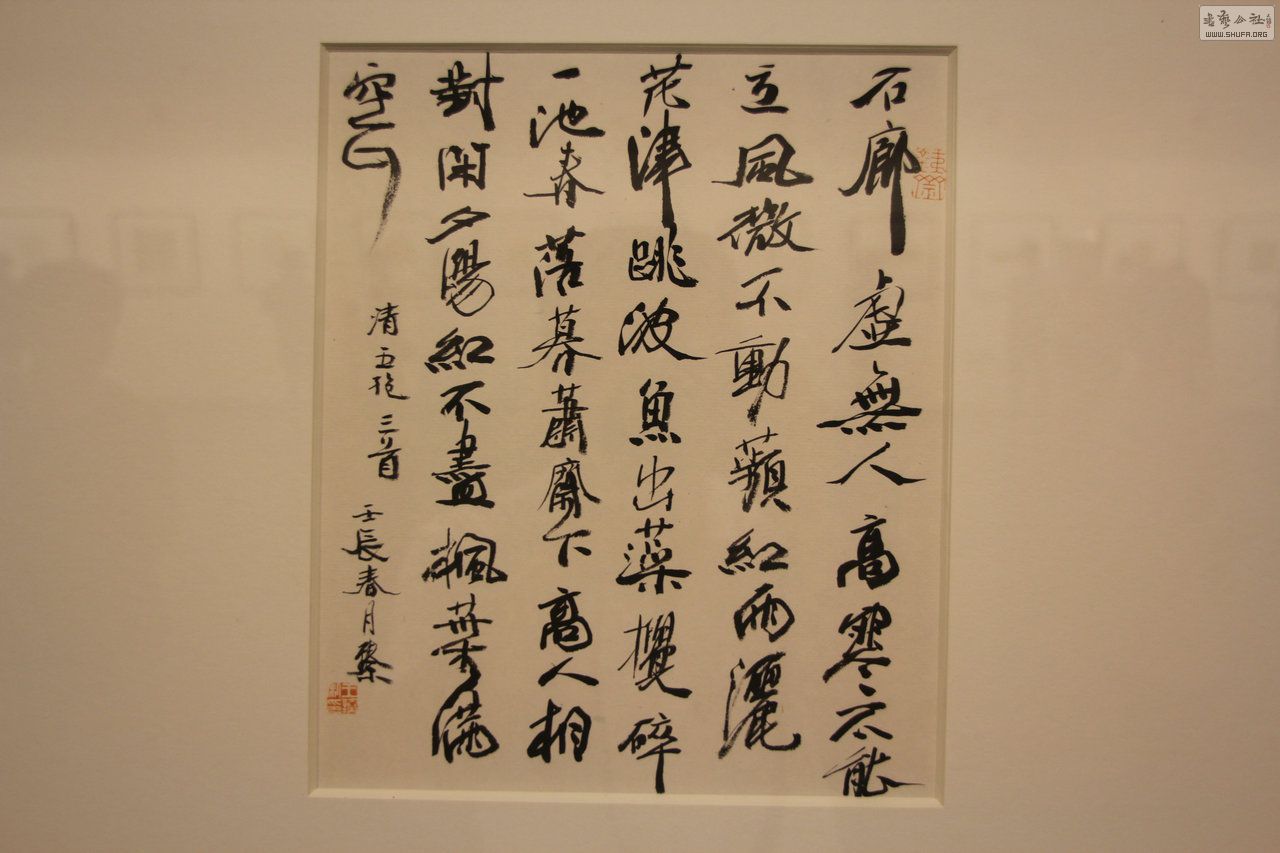 石廊虛無人高寒不能
立風微不動蘋紅雨灑
花津跳波魚出藻攪碎
一池春落暮蕭齋下高人相
對閑夕陽紅不盡楓葉滿
空山
清五絕三首
壬辰春月
書藝公社
WWW.SHUFA.ORG